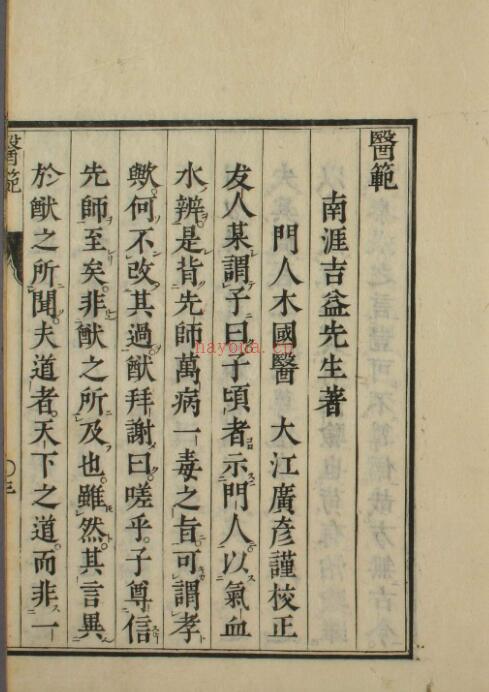 醫範
南涯吉益先生著
門人木國醫 大江廣彥謹校正
友人某謂予曰子頃者示門人以氣血
水辨是背先師萬病一毒之旨可謂孝
歟何不改其過猷拜謝曰嗟乎子尊信
先師至矣非猷之所及也雖然其言異
於猷之所聞夫道者天下之道而非一
醫範
〇三
nayona.cn